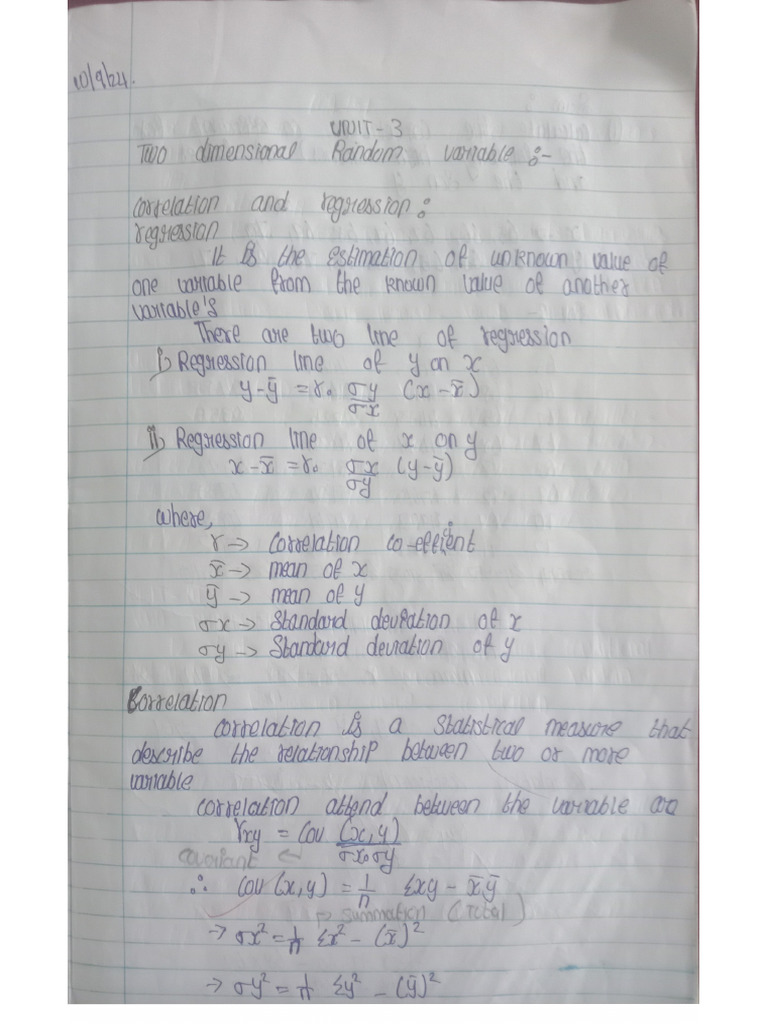 10/9/24.
UNIT - 3
Two dimensional Random variable :-
correlation and regression :
regression
It is the estimation of unknown value of
one variable from the known value of another
variable's
There are two line of regression
i) Regression line of y on x
y - ȳ = r. σy/σx (x - x̄)
ii) Regression line of x on y
x - x̄ = r. σx/σy (y - ȳ)
where,
r → correlation co-efficient
x̄ → mean of x
ȳ → mean of y
σx → standard deviation of x
σy → standard deviation of y
Correlation
correlation is a statistical measure that
describe the relationship between two or more
variable
correlation attend between the variable are
rxy = cov (x,y)/σx.σy
covariant ←
∴ cov (x,y) = 1/n Σxy - x̄ȳ
→ summation (total)
→ σx² = 1/n Σx² - (x̄)²
→ σy² = 1/n Σy² - (ȳ)²